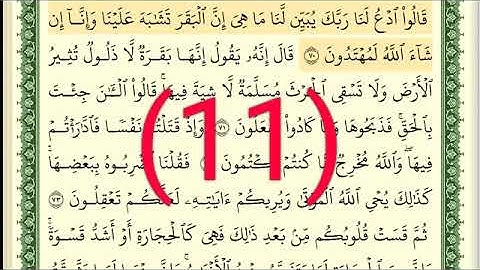 قَالُوا۟ ٱدْعُ لَنَا رَبَّكَ يُبَيِّن لَّنَا مَا هِىَ إِنَّ ٱلْبَقَرَ تَشَـٰبَهَ عَلَيْنَا وَإِنَّآ إِن
شَآءَ ٱللَّهُ لَمُهْتَدُونَ ٧٠ قَالَ إِنَّهُۥ يَقُولُ إِنَّهَا بَقَرَةٌ لَّا ذَلُولٌ تُثِيرُ
ٱلْأَرْضَ وَلَا تَسْقِى ٱلْحَرْثَ مُسَلَّمَةٌ لَّا شِيَةَ فِيهَا قَالُوا۟ ٱلْـَٔـٰنَ جِئْتَ
بِٱلْحَقِّ فَذَبَحُوهَا وَمَا كَادُوا۟ يَفْعَلُونَ ٧١ وَإِذْ قَتَلْتُمْ نَفْسًا فَٱدَّٰرَْٰٔتُمْ
فِيهَا وَٱللَّهُ مُخْرِجٌ مَّا كُنتُمْ تَكْتُمُونَ فَقُلْنَا ٱضْرِبُوهُ بِبَعْضِهَا
كَذَٰلِكَ يُحْىِ ٱللَّهُ ٱلْمَوْتَىٰ وَيُرِيكُمْ ءَايَـٰتِهِۦ لَعَلَّكُمْ تَعْقِلُونَ ٧٣
ثُمَّ قَسَتْ قُلُوبُكُم مِّنۢ بَعْدِ ذَٰلِكَ فَهِىَ كَٱلْحِجَارَةِ أَوْ أَشَدُّ قَسْوَةً
(11)